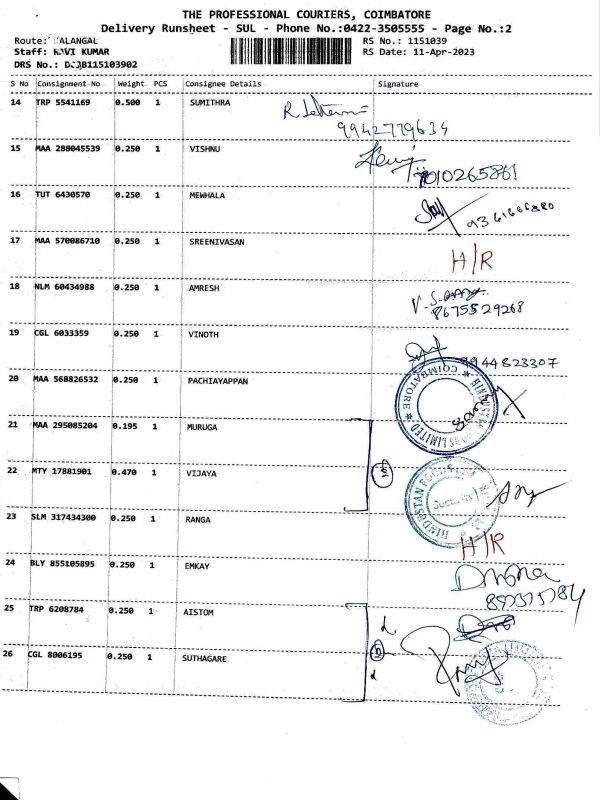 THE PROFESSIONAL COURIERS, COIMBATORE
Delivery Runsheet - SUL - Phone No.:0422-3505555 - Page No.:2
Route:
Staff: KUMAR RS No.: 1151039
DRS No.: RS Date: 11-Apr-2023
S No Consignment No Weight PCS Consignee Details Signature
14 TRP 5541169 0.500 1 SUMITHRA
9942779634
15 MAA 288045539 0.250 1 VISHNU
16 TUT 6430570 0.250 1 MEWHALA
17 MAA 570086710 0.250 1 SREENIVASAN H/R
18 NLM 60434988 0.250 1 AMRESH
8675529268
19 CGL 6033359 0.250 1 VINOTH
9944823307
20 MAA 568826532 0.250 1 PACHIAYAPPAN
COIMBATORE
LIMITED
21 MAA 295085204 0.195 1 MURUGA
22 MTY 17881901 0.470 1 VIJAYA
HINDUSTAN
23 SLM 317434300 0.250 1 RANGA H/R
24 BLY 855105895 0.250 1 EMKAY
25 TRP 6208784 0.250 1 AISTOM
26 CGL 8006195 0.250 1 SUTHAGARE